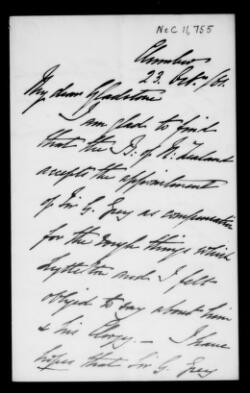 NeC 11,755
Clumber
23. Octr /54.
My dear Gladstone
I am glad to find
that the D. of N. Zealand
accepts the appointment
of Sir G. Grey as compensation
for the rough things which
Lyttelton and I felt
obliged to say about him
& his Clergy. — I have
hopes that Sir G. Grey